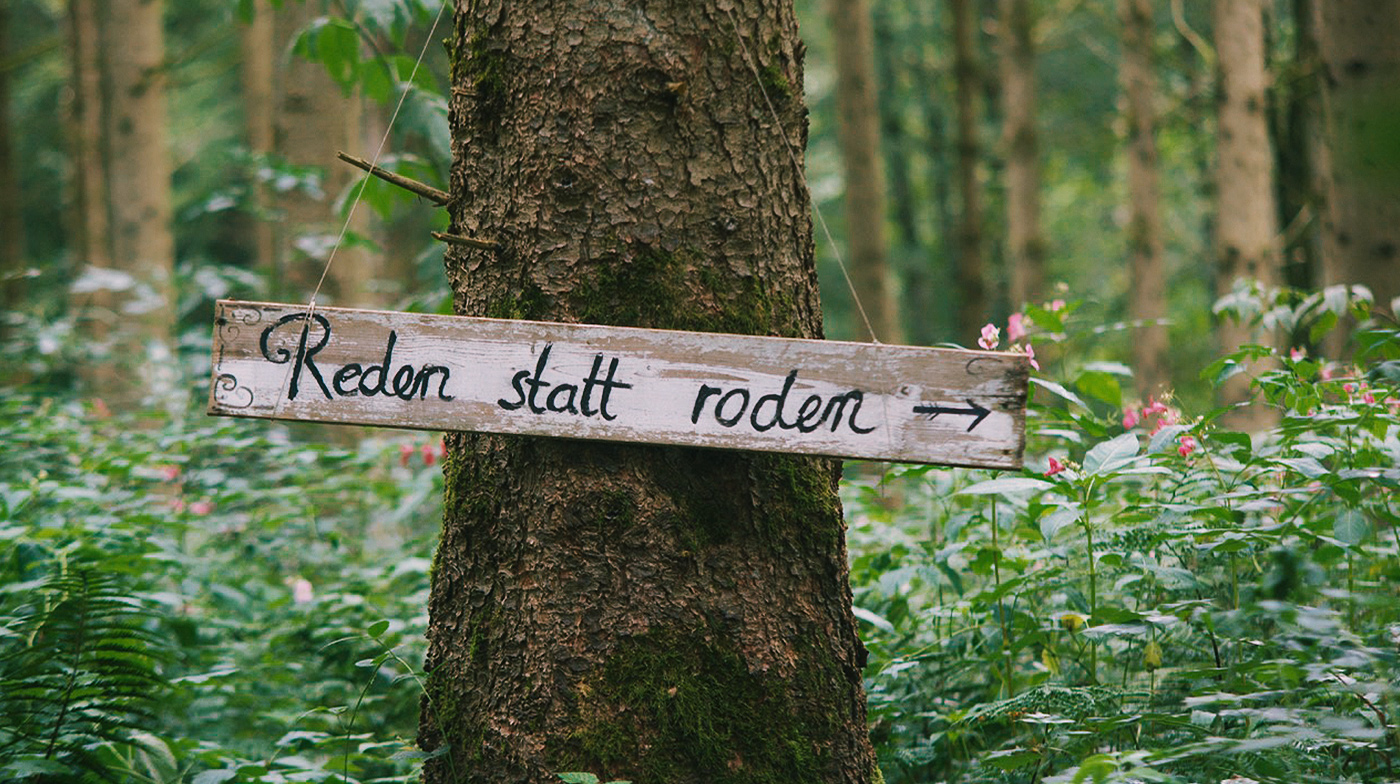 Reden statt roden →